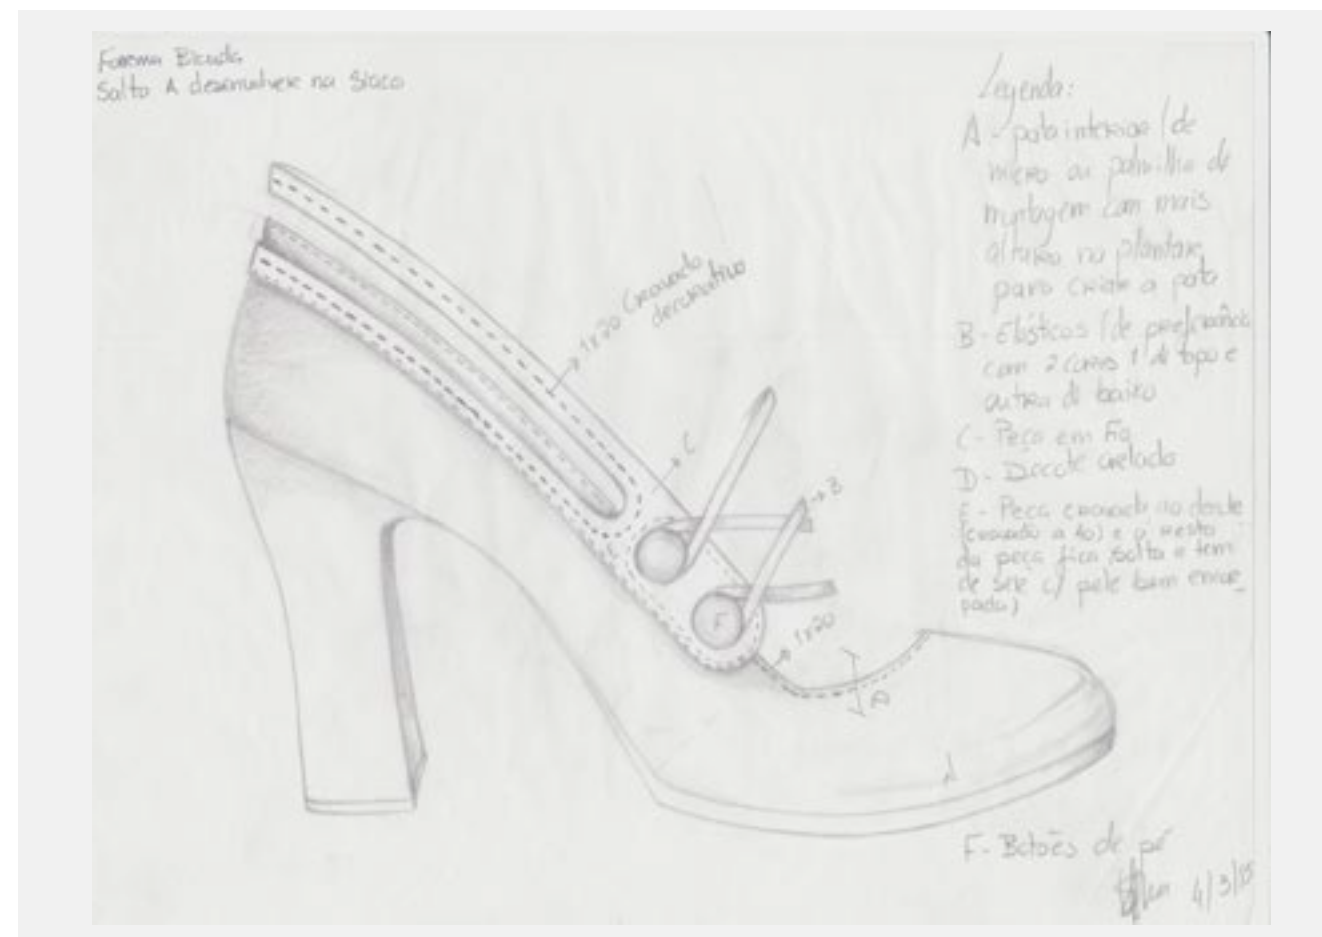 Forma Bicuda
Salto A desenvolver na Siaco
Legenda:
A - pata interior (de
micro ou palmilha de
montagem com mais
altura na plantar,
para criar a pata
B - Elásticos (de preferência
com 2 cores 1 de topo e
outra de baixo
C - Peça em
D - Decote
E - Peça cravado no decote
(cravado a to) e o resto
da peça fica solta e tem
de ser c/ pele bem
1x20 Cravado
decorativo
C
B
F
1x20
A
F - Botões de pé
4/3/15